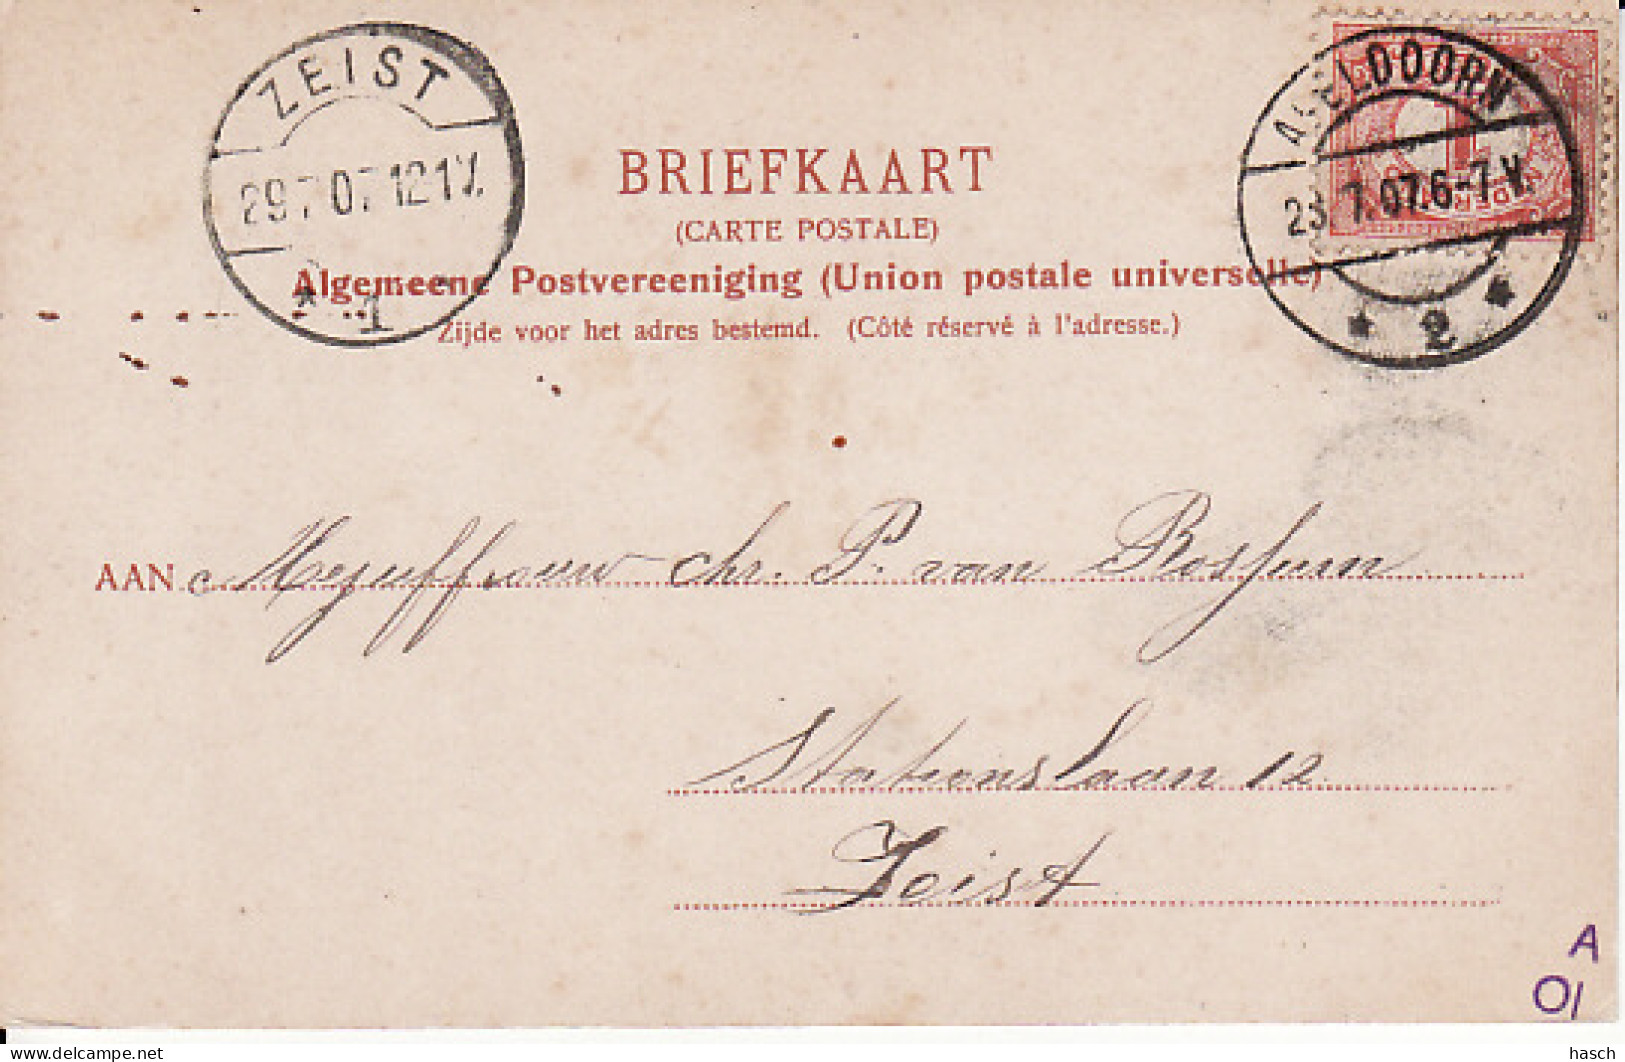 ZEIST
29.7.07.12-1V.
1
APELDOORN
28.7.07.6-7V.
2
BRIEFKAART
(CARTE POSTALE)
Algemeene Postvereeniging (Union postale universelle)
Zijde voor het adres bestemd. (Côté réservé à l'adresse.)
AAN Mejuffrouw Chr. P. van Rossum
Stationslaan 12
Zeist
A
01
hasch